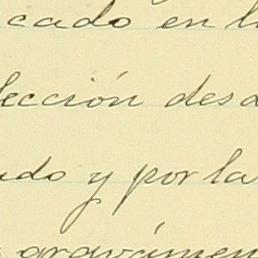 cado en l
lección desd
ndo y por la
gravámen